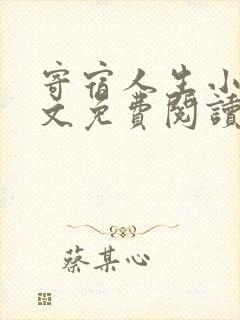 寄宿人生小
文免費閱讀
蔡某心